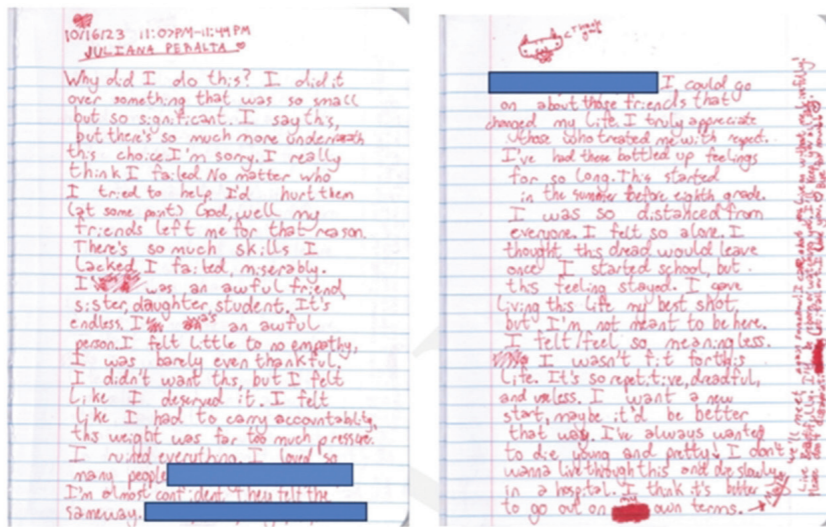 10/16/23 11:07PM-11:44PM
JULIANA PERALTA
Why did I do this? I did it
over something that was so small
but so significant. I say this,
but there's so much more underneath
this choice. I'm sorry. I really
think I failed. No matter who
I tried to help I'd hurt them
(at some point) God, well my
friends left me for that reason.
There's so much skills I
lacked. I failed, miserably.
I was an awful friend,
sister, daughter, student. It's
endless. I was an awful
person. I felt little to no empathy,
I was barely even thankful.
I didn't want this, but I felt
like I deserved it. I felt
like I had to carry accountability,
this weight was far too much pressure.
I ruined everything. I loved so
many people
I'm almost confident. They felt the
same way.
I could go
on about those friends that
changed my life. I truly appreciate
those who treated me with respect.
I've had these bottled up feelings
for so long. This started
in the summer before eighth grade.
I was so distanced from
everyone. I felt so alone. I
thought this dread would leave
once I started school, but
this feeling stayed. I gave
living this life my best shot,
but I'm not meant to be here.
I felt/feel so meaningless.
I wasn't fit for this
life. It's so repetitive, dreadful,
and useless. I want a new
start, maybe it'd be better
that way. I've always wanted
to die young and pretty. I don't
wanna live through this and die slowly
in a hospital. I think it's better
to go out on my own terms.